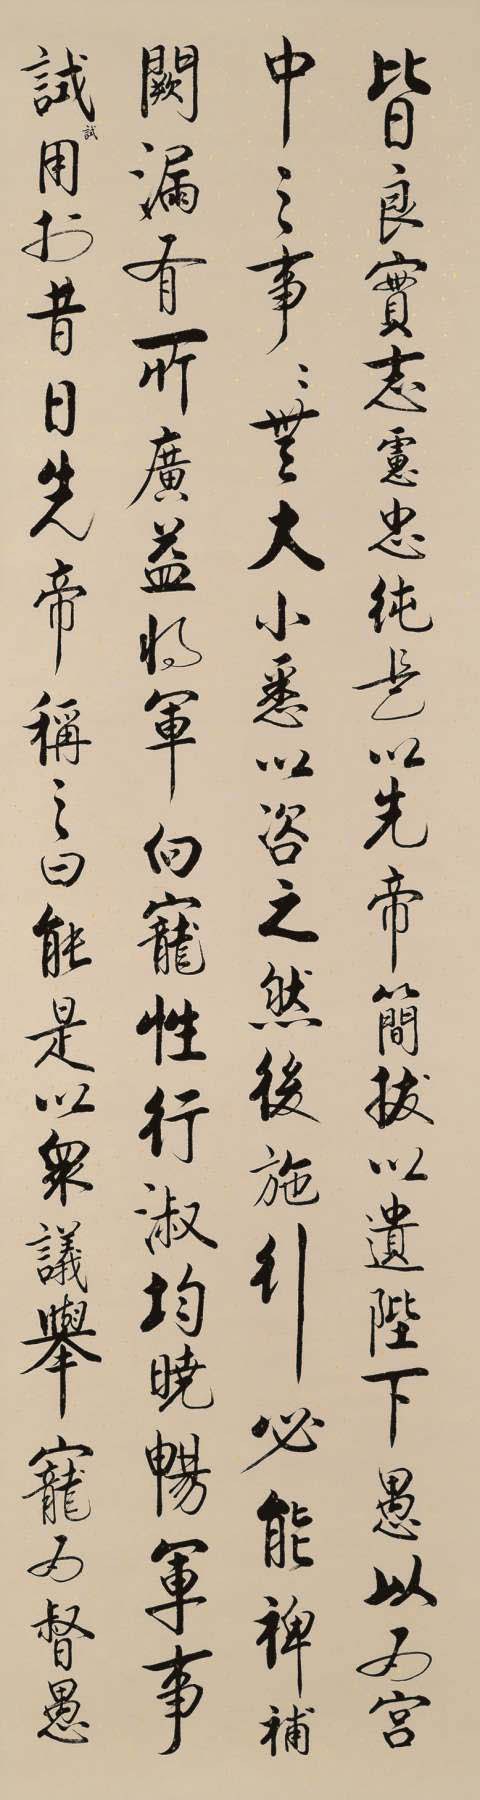 皆良實志慮忠純是以先帝簡拔以遺陛下愚以為宮
中之事〻無大小悉以咨之然後施行必能裨補
闕漏有所廣益將軍向寵性行淑均曉暢軍事
誠試用於昔日先帝稱之曰能是以眾議舉寵為督愚